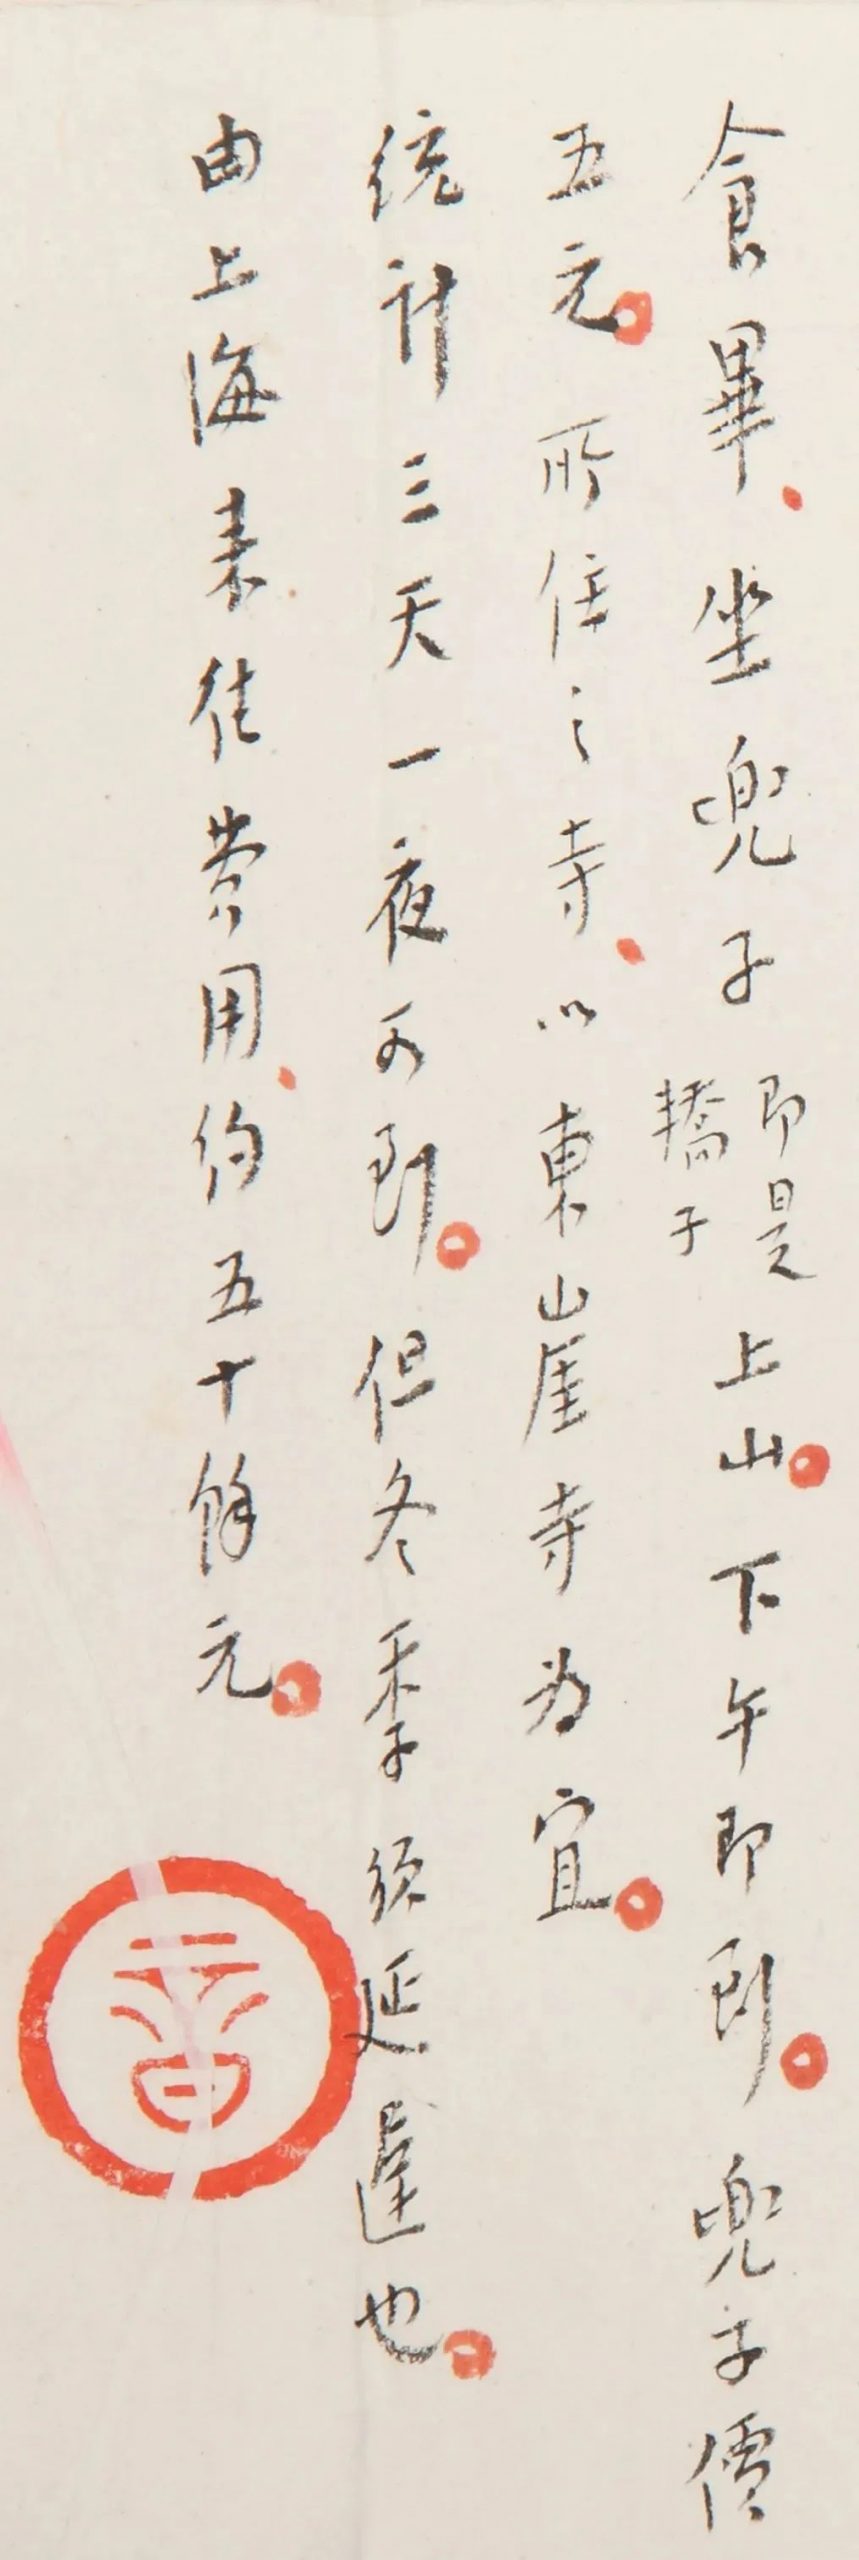 食畢、坐兜子
即是
轎子
上山。下午即到。兜子價
五元。所住之寺、以東山崖寺為宜。
統計三天一夜可到。但冬季須延遲也。
由上海來往費用、約五十餘元。